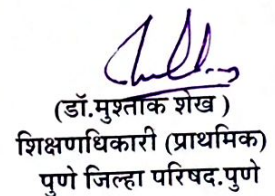 (डॉ.मुश्ताक शेख )
शिक्षणधिकारी (प्राथमिक)
पुणे जिल्हा परिषद.पुणे